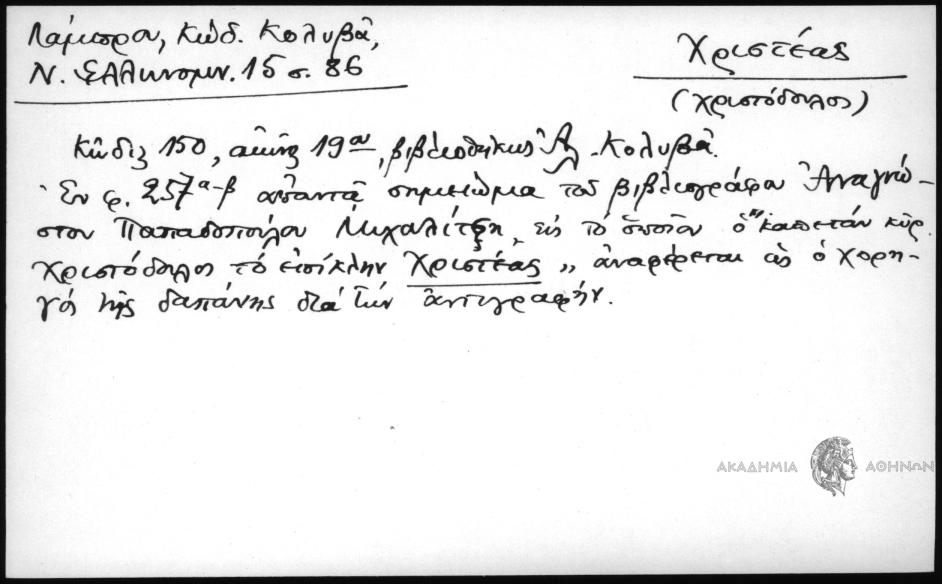 Λάμπρου, Κώδ. Κολυβᾶ,
Ν. Ἑλληνομν. 15 σ. 86
Χριστέας
(Χριστόδουλος)
Κῶδιξ 150, αἰῶνος 19ου, βιβλιοθήκης Ἀλ. Κολυβᾶ.
Ἐν φ. 257α-β ἀπαντᾷ σημείωμα τοῦ βιβλιογράφου Ἀναγνώ-
στου Παπαδοπούλου Μιχαλίτση, εἰς τὸ ὁποῖον ὁ "καπετάν κὺρ
Χριστόδουλος τὸ ἐπίκλην Χριστέας" ἀναφέρεται ὡς ὁ χορη-
γὸς τῆς δαπάνης διὰ τὴν ἀντιγραφήν.
ΑΚΑΔΗΜΙΑ ΑΘΗΝΩΝ